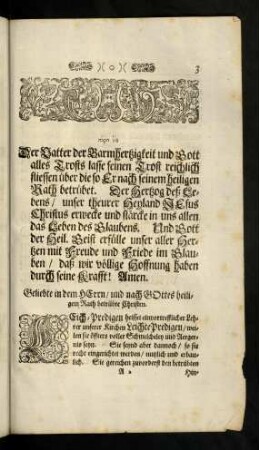 3
Der Vatter der Barmhertzigkeit und Gott
alles Trosts lasse seinen Trost reichlich
fliessen über die so Er nach seinem heiligen
Rath betrübet. Der Hertzog deß Le-
bens / unser theurer Heyland JEsus
Christus erwecke und stärcke in uns allen
das Leben des Glaubens. Und Gott
der Heil. Geist erfülle unser aller Her-
tzen mit Freude und Friede im Glau-
ben / daß wir völlige Hoffnung haben
durch seine Krafft! Amen.
Geliebte in dem HErrn / und nach GOttes heili-
gem Rath betrübte Christen.
LEich-Predigen heisset ein vortrefflicher Leh-
rer unserer Kirchen Leichte Predigen / wei-
len sie öffters voller Schmeicheley und Aerger-
nis seyn. Sie seynd aber dannoch / so sie
recht eingerichtet werden / nutzlich und erbau-
lich. Sie gereichen zuvorderst den betrübten
A 2 Hin-